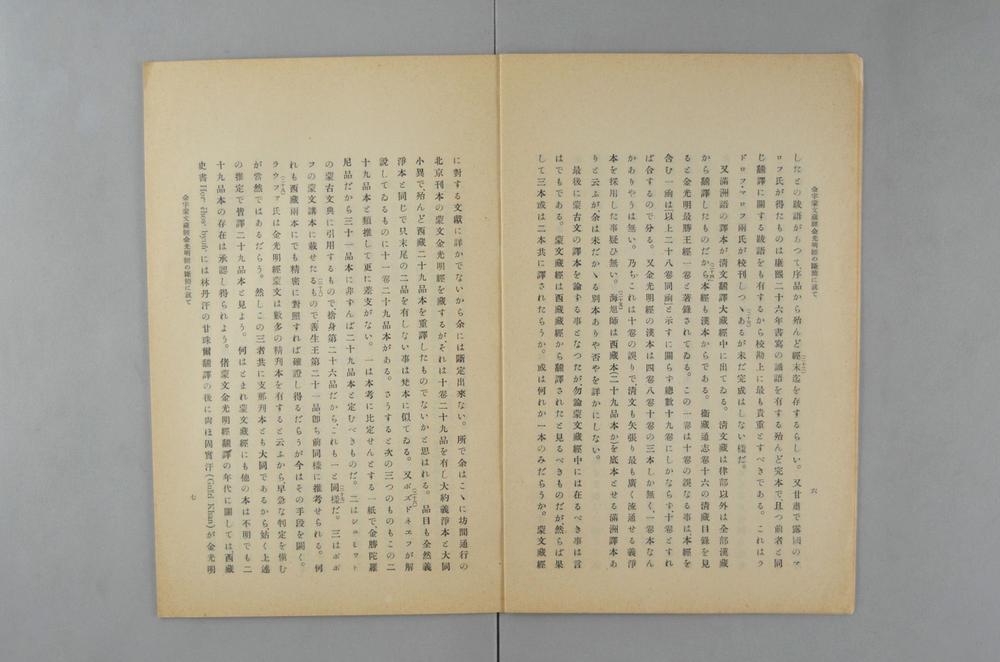 金字蒙文藏經金光明經の斷簡に就て
六
したとの跋語があつて、序品から殆んど經末迄を存するらしい。又甘肅で露國のマ
ロフ氏が得たものは康熙二十六年書寫の誦語を有する殆んど完本で、且つ前者と同
じ飜譯に關する跋語をも有するから校勘上に最も貴重とすべきである。これはラ
ドロフ・マロフ兩氏が校刊しつゝあるが未だ完成はしない樣だ。
又滿洲語の譯本が清文飜譯大藏經中に出てゐる。清文藏は律部以外は全部漢藏
から飜譯したものだから、本經も漢本からである。衞藏通志卷十六の清藏目錄を見
ると金光明最勝王經一卷と著錄されてゐる。この一卷は十卷の誤なる事は、本經を
含む一函は(以上二十八卷同函)と示すに關らず總數十九卷にしかならず、十卷とすれ
ば合するので分る。又金光明經の漢本は四卷八卷十卷の三本しか無く、一卷本なん
かありやうは無い。乃ちこれは十卷の誤りで清文も矢張り最も廣く流通せる義淨
本を採用した事疑ひ無い。海旭師は西藏本(二十九品本か)を底本とせる滿洲譯本あ
りと云ふが、余は未だかゝる別本ありや否やを詳かにしない。
最後に蒙古文の譯本を論ずる事となつたが、勿論蒙文藏經中には在るべき事は言
はでもである。蒙文藏經は西藏藏經から飜譯されたと見るべきものだが、然らば果
して三本或は二本共に譯されたらうか。或は何れか一本のみだらうか。蒙文藏經
に對する文獻に詳かでないから余には斷定出來ない。所で余はこゝに坊間通行の
北京刊本の蒙文金光明經を藏するが、それは十卷二十九品を有し大約義淨本と大同
小異で、殆んど西藏二十九品本を重譯したものでないかと思はれる。品目も全然義
淨本と同じで只末尾の二品を有しない事は梵本に似てゐる。又ポズドネエフが解
說してゐるものに十一卷二十九品本がある。さうすると次の三つのものもこの二
十九品本と類推して更に差支がない。一は本考に比定せんとする一紙で、金勝陀羅
尼品だから三十一品本に非ずんば二十九品本と定むべきものだ。二はシュミット
の蒙古文典に引用するもので、捨身第二十六品だから、これも一と同樣だ。三はポポ
フの蒙文讀本に載せたるもので善生王第二十一品卽ち前同樣に推考せられる。何
れも西藏兩本にでも精密に對照すれば確證し得るだらうが今はその手段を闕く。
ラウファ氏は金光明經蒙文は數多の精刋本を有すると云ふから早急な判定を愼む
が當然ではあるだらう。然しこの三者共に支那刊本とも大同であるから、姑く上述
の推定で皆譯二十九品本と見よう。何はともあれ蒙文藏經にも他の本は不明でも二
十九品本の存在は承認し得られよう。偖蒙文金光明經飜譯の年代に關しては西藏
史書 Hor čhos byuṅ には林丹汗の甘珠爾飜譯の後に尙ほ固實汗 (Guśri Khan) が金光明
金字蒙文藏經金光明經の斷簡に就て
七